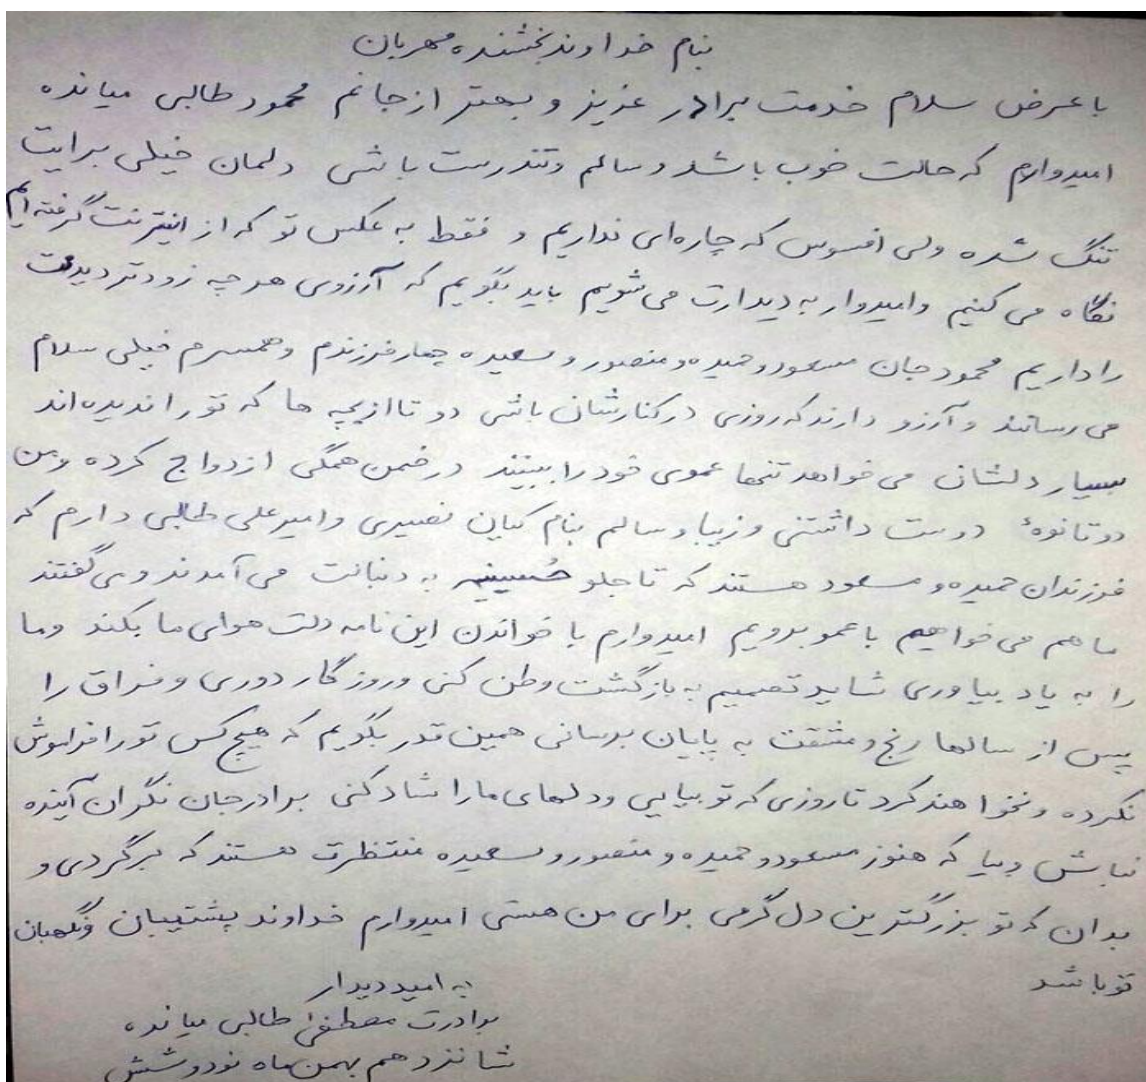 بنام خداوند بخشنده مهربان
با عرض سلام خدمت برادر عزیز و بهتر از جانم محمود طالبی میانده
امیدوارم که حالت خوب باشد و سالم و تندرست باشی دلمان خیلی برایت
تنگ شده ولی افسوس که چاره‌ای نداریم و فقط به عکس تو که از اینترنت گرفته‌ایم
نگاه می‌کنیم و امیدوار به دیدارت می‌شویم باید بگویم که آرزوی هر چه زودتر دیدنت
را داریم محمود جان مسعود و حمیده و منصور و سعیده چهار فرزندم و همسرم خیلی سلام
می‌رسانند و آرزو دارند که روزی در کنارشان باشی دو تا از بچه ها که تو را ندیده‌اند
بسیار دلشان می‌خواهد تنها عموی خود را ببینند در ضمن همگی ازدواج کرده و من
دو تا نوهٔ دوست داشتنی و زیبا و سالم بنام کیان نصیری و امیرعلی طالبی دارم که
فرزندان حمیده و مسعود هستند که تا جلو حسینیه به دنبالت می‌آمدند و می‌گفتند
ما هم می‌خواهیم با عمو برویم امیدوارم با خواندن این نامه دلت هوای ما بکند و ما
را به یاد بیاوری شاید تصمیم به بازگشت وطن کنی و روزگار دوری و فراق را
پس از سالها رنج و مشقت به پایان برسانی همین قدر بگویم که هیچ کس تو را فراموش
نکرده و نخواهند کرد تا روزی که تو بیایی و دلهای ما را شاد کنی برادر جان نگران آینده
نباش و بیا که هنوز مسعود و حمیده و منصور و سعیده منتظرت هستند که برگردی و
بدان که تو بزرگترین دل گرمی برای من هستی امیدوارم خداوند پشتیبان و نگهبان
تو باشد
به امید دیدار
برادرت مصطفی طالبی میانده
شانزدهم بهمن ماه نود و شش